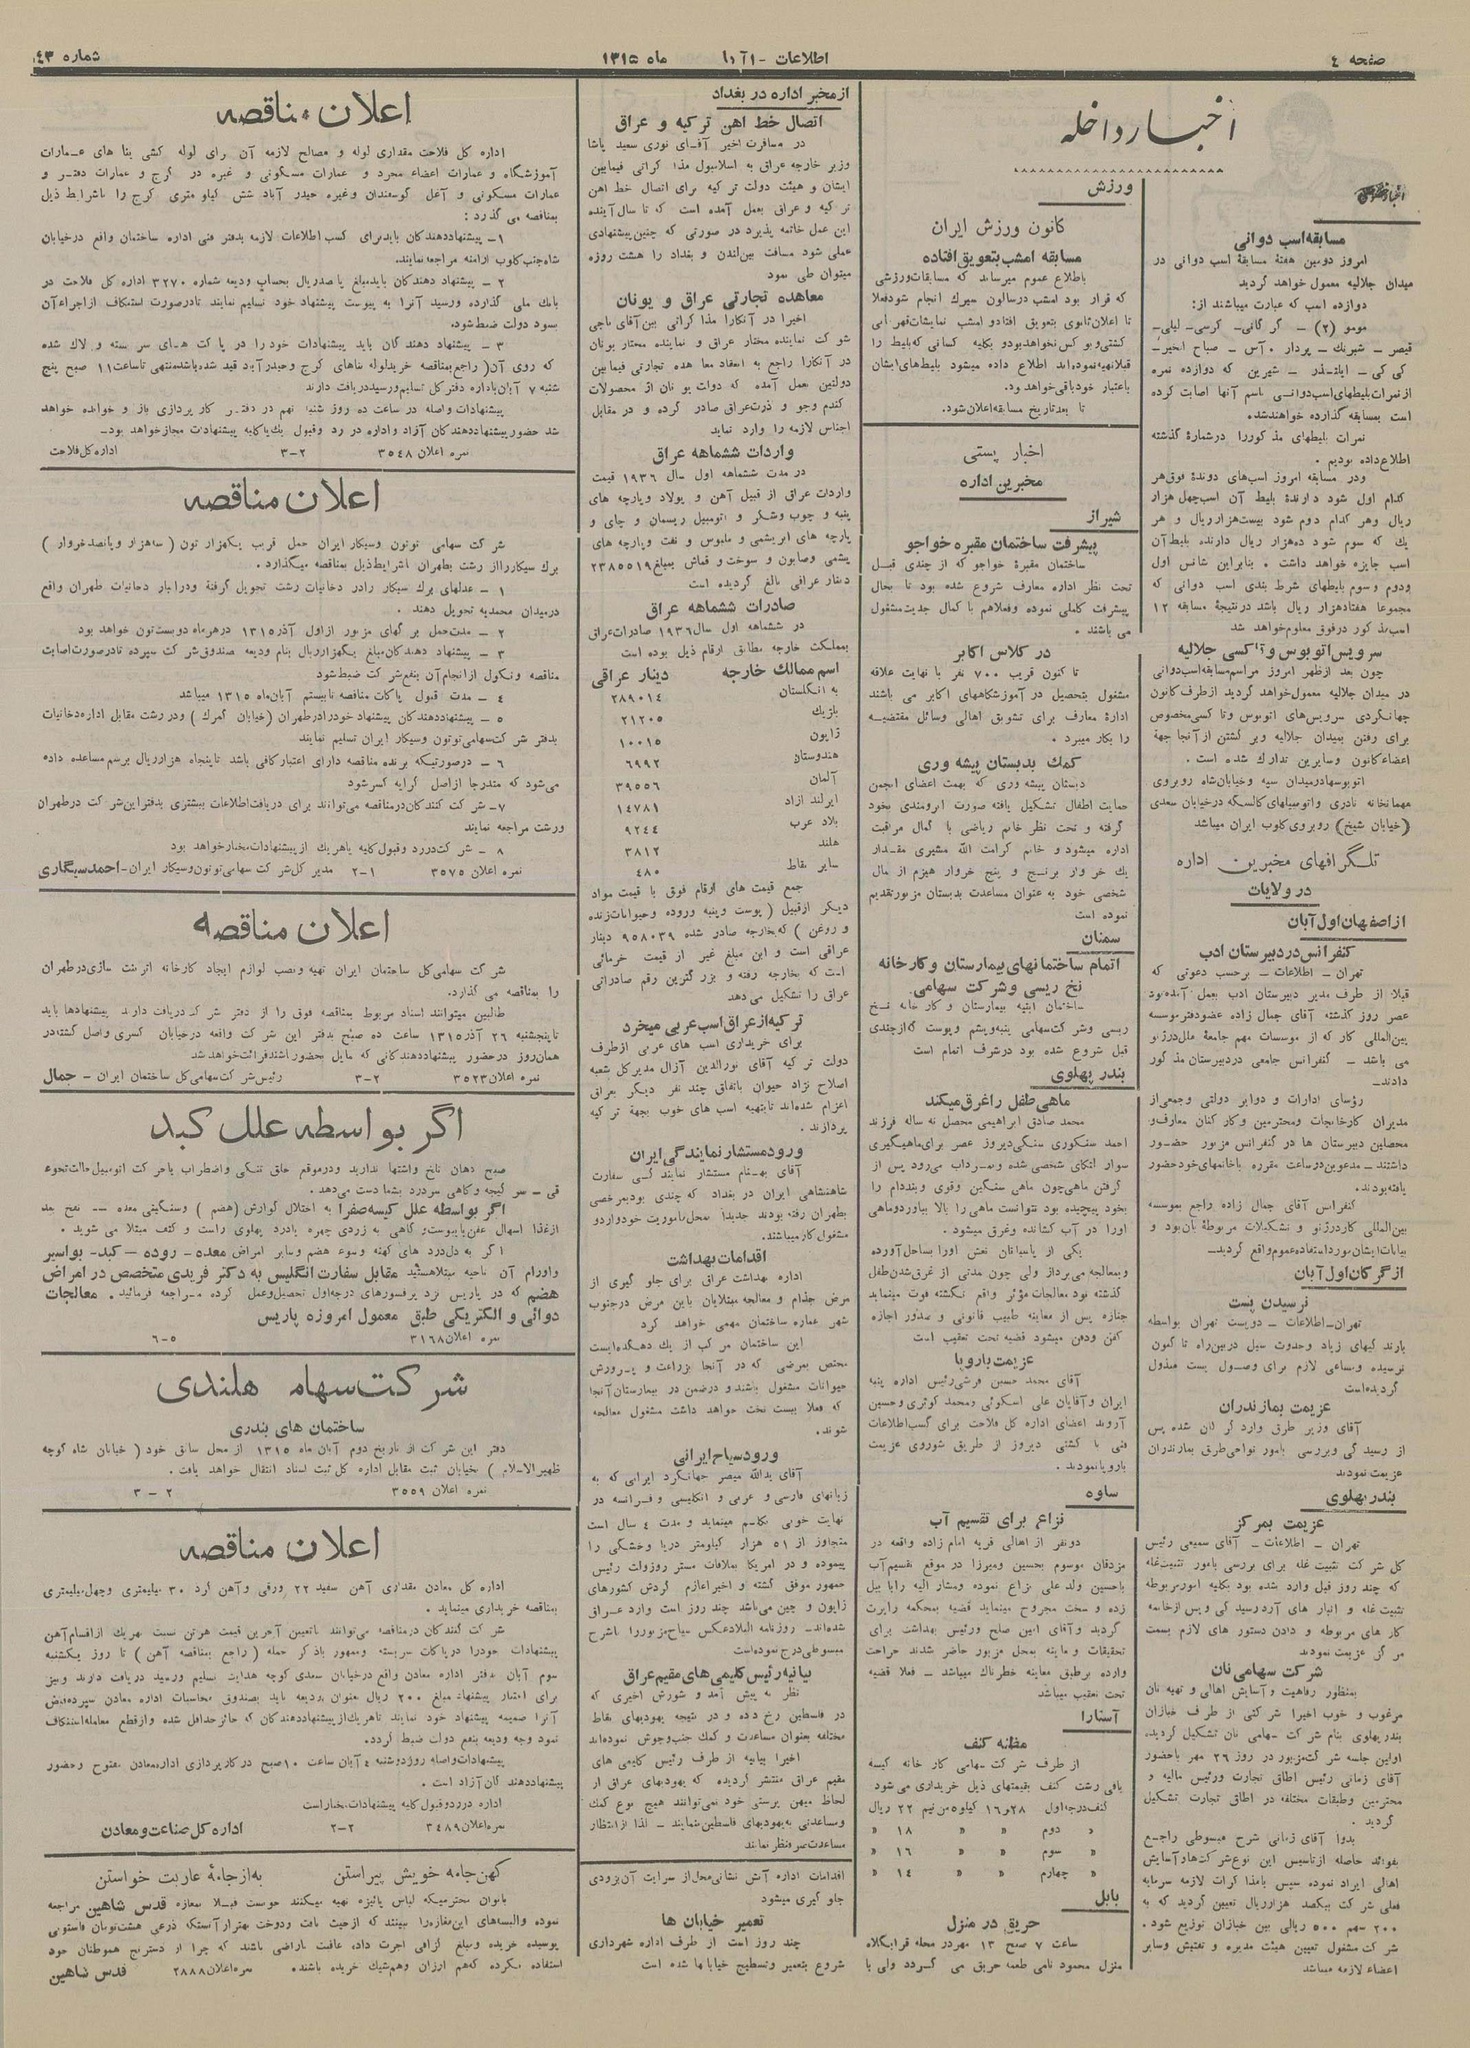 صفحه ٤
اطلاعات
ماه ١٣١٥
شماره ٤٣
اخبار داخله
مسابقه اسب دوانی
امروز دومین هفتهٔ مسابقهٔ اسب دوانی در
میدان جلالیه معمول خواهد گردید
دوازده اسب که عبارت میباشند از:
مومو (٢) – گرگانی – کرسی – لیلی –
قیصر – شبرنك – پردار
کی کی –
شیرین که دوازده نمره
از نمرات بلیطهای اسب دوانی باسم آنها اصابت کرده
است بمسابقه گذارده خواهند شد
نمرات بلیطهای مذکور را در شمارهٔ گذشته
اطلاع داده بودیم .
و در مسابقه امروز اسب‌های دوندهٔ فوق هر
کدام اول شود دارندهٔ بلیط آن اسب چهل هزار
ریال و هر کدام دوم شود بیست هزار ریال و هر
یك که سوم شود ده هزار ریال دارنده بلیط آن
اسب جایزه خواهد داشت . بنابراین شانس اول
و دوم و سوم بلیطهای شرط بندی اسب دوانی که
مجموعا هفتاد هزار ریال باشد در نتیجهٔ مسابقه ١٢
اسب مذکور در فوق معلوم خواهد شد
سرویس اتوبوس و تاکسی جلالیه
چون بعد از ظهر امروز مراسم مسابقه اسب دوانی
در میدان جلالیه معمول خواهد گردید از طرف کانون
جهانگردی سرویس‌های اتوبوس و تاکسی مخصوص
برای رفتن بمیدان جلالیه و برگشتن از آنجا جهة
اعضاء کانون و سایرین تدارك شده است .
اتوبوسها در میدان سپه و خیابان شاه روبروی
مهمانخانه نادری و اتومبیلهای کالسکه در خیابان سعدی
(خیابان شیخ) روبروی کلوب ایران میباشد
تلگرافهای مخبرین اداره
در ولایات
از اصفهان اول آبان
کنفرانس در دبیرستان ادب
تهران – اطلاعات – برحسب دعوتی که
قبلا از طرف مدیر دبیرستان ادب بعمل آمده بود
عصر روز گذشته آقای جمال زاده عضو دفتر موسسه
بین‌المللی کار که از موسسات مهم جامعهٔ ملل در ژنو
می باشد – کنفرانس جامعی در دبیرستان مذکور
دادند –
رؤسای ادارات و دوایر دولتی و جمعی از
مدیران کارخانجات و محترمین و کارکنان معارف و
محصلین دبیرستان ها در کنفرانس مزبور حضور
داشتند – مدعوین در ساعت مقرره با خانمهای خود حضور
یافته بودند.
کنفرانس آقای جمال زاده راجع بموسسه
بین‌المللی کار در ژنو و تشکیلات مربوطهٔ بآن بود و
بیانات ایشان مورد استفاده عموم واقع گردید –
از گرگان اول آبان
نرسیدن پست
تهران – اطلاعات – دو پست تهران بواسطه
بارندگیهای زیاد و حدوث سیل در بین راه تا کنون
نرسیده و مساعی لازم برای وصول پست مبذول
گردیده است
عزیمت بمازندران
آقای وزیر طرق وارد گرگان شده پس
از رسیدگی و بررسی بامور نواحی طرق بمازندران
عزیمت نمودند
بندر پهلوی
عزیمت بمرکز
تهران – اطلاعات – آقای سمیعی رئیس
کل شرکت تثبیت غله برای بررسی بامور تثبیت غله
که چند روز قبل وارد شده بود بکلیه امور مربوطه
تثبیت غله و انبار های آرد رسیدگی و پس از خاتمه
کار های مربوطه و دادن دستور های لازم بسمت
مرکز عزیمت نمودند
شرکت سهامی نان
بمنظور رفاهیت و آسایش اهالی و تهیه نان
مرغوب و خوب اخیرا شرکتی از طرف خبازان
بندر پهلوی بنام شرکت سهامی نان تشکیل گردید.
اولین جلسه شرکت مزبور در روز ٢٦ مهر با حضور
آقای زمانی رئیس اطاق تجارت و رئیس مالیه و
محترمین و طبقات مختلفه در اطاق تجارت تشکیل
گردید .
بدوا آقای زمانی شرح مبسوطی راجع
بفوائد حاصله از تاسیس این نوع شرکت‌ها و آسایش
اهالی ایراد نموده سپس با مذاکرات لازمه سرمایه
فعلی شرکت بیکصد هزار ریال تعیین گردید که به
٢٠٠ سهم ٥٠٠ ریالی بین خبازان توزیع شود.
شرکت مشغول تعیین هیئت مدیره و تفتیش و سایر
اعضاء لازمه میباشد
ورزش
کانون ورزش ایران
مسابقه امشب بتعویق افتاده
باطلاع عموم میرساند که مسابقات ورزشی
که قرار بود امشب در سالون سیرك انجام شود فعلا
تا اعلان ثانوی بتعویق افتاد و امشب نمایشات قهرمانی
کشتی و بوکس نخواهد بود و بکلیه کسانی که بلیط را
قبلا تهیه نموده‌اند اطلاع داده میشود بلیط‌های ایشان
باعتبار خود باقی خواهد بود.
تا بعد تاریخ مسابقه اعلان شود.
اخبار پستی
مخبرین اداره
شیراز
پیشرفت ساختمان مقبره خواجو
ساختمان مقبرهٔ خواجو که از چندی قبل
تحت نظر اداره معارف شروع شده بود تا بحال
پیشرفت کاملی نموده و فعلا هم با کمال جدیت مشغول
می باشند .
در کلاس اکابر
تا کنون قریب ٧٠٠ نفر با نهایت علاقه
مشغول بتحصیل در آموزشگاههای اکابر می باشند
ادارهٔ معارف برای تشویق اهالی وسائل مقتضیه
را بکار میبرد .
کمك بدبستان پیشه وری
دبستان پیشه وری که بهمت اعضای انجمن
حمایت اطفال تشکیل یافته صورت آبرومندی بخود
گرفته و تحت نظر خانم ریاضی با کمال مراقبت
اداره میشود و خانم کرامت الله مشیری مقدار
یك خروار برنج و پنج خروار هیزم از مال
شخصی خود به عنوان مساعدت بدبستان مزبور تقدیم
نموده است
سمنان
اتمام ساختمانهای بیمارستان و کارخانه
نخ ریسی و شرکت سهامی
ساختمان ابنیه بیمارستان و کارخانه نخ
ریسی و شرکت سهامی پنبه و پشم و پوست که از چندی
قبل شروع شده بود در شرف اتمام است
بندر پهلوی
ماهی طفل را غرق میکند
محمد صادق ابراهیمی محصل نه ساله فرزند
احمد سنگوری سنگی دیروز عصر برای ماهیگیری
سوار لتکای شخصی شده و بمرداب می‌رود پس از
گرفتن ماهی چون ماهی سنگین و قوی و بند دام را
بخود پیچیده بود نتوانست ماهی را بالا بیاورد و ماهی
او را در آب کشانده و غرق میشود.
یکی از پاسبانان نعش او را بساحل آورده
و بمعالجه می‌پردازد ولی چون مدتی از غرق شدن طفل
گذشته بود معالجات مؤثر واقع نگشته فوت مینماید
جنازه پس از معاینه طبیب قانونی و صدور اجازه
کفن و دفن میشود قضیه تحت تعقیب است
عزیمت باروپا
آقای محمد حسین قرشی رئیس اداره پنبه
ایران و آقایان علی اسکوئی و محمد کوثری و حسین
آروند اعضای اداره کل فلاحت برای کسب اطلاعات
فنی با کشتی دیروز از طریق شوروی عزیمت
باروپا نمودند .
ساوه
نزاع برای تقسیم آب
دو نفر از اهالی قریه امام زاده واقعه در
مزدقان موسوم بحسین و میرزا در موقع تقسیم آب
با حسین ولد علی نزاع نموده و مشار الیه را با بیل
زده و سخت مجروح مینماید قضیه بمحکمه راپرت
گردید و آقای امین صلح و رئیس بهداشت برای
تحقیقات و معاینه بمحل مزبور حاضر شدند جراحت
وارده بر طبق معاینه خطرناك میباشد – فعلا قضیه
تحت تعقیب میباشد
آستارا
مظنه کنف
از طرف شرکت سهامی کارخانه کیسه
بافی رشت کنف بقیمتهای ذیل خریداری می شود
کنف درجه اول ٢٨ و ١٦ کیلو ٥ من نیم ٢٢ ریال
« دوم « « ١٨ «
« سوم « « ١٦ «
« چهارم « « ١٤ «
بابل
حریق در منزل
ساعت ٧ صبح ١٣ مهر در محله قرابیگلاه
منزل محمود نامی طعمه حریق می گردد ولی با
از مخبر اداره در بغداد
اتصال خط اهن ترکیه و عراق
در مسافرت اخیر آقای نوری سعید پاشا
وزیر خارجه عراق به اسلامبول مذاکراتی فیمابین
ایشان و هیئت دولت ترکیه برای اتصال خط اهن
ترکیه و عراق بعمل آمده است که تا سال آینده
این عمل خاتمه پذیرد در صورتی که چنین پیشنهادی
عملی شود مسافت بین لندن و بغداد را هشت روزه
میتوان طی نمود
معاهده تجارتی عراق و یونان
اخیرا در آنکارا مذاکراتی بین آقای ناجی
شوکت نماینده مختار عراق و نماینده مختار یونان
در آنکارا راجع به انعقاد معاهده تجارتی فیمابین
دولتین بعمل آمده که دولت یونان از محصولات
گندم وجو و ذرت عراق صادر کرده و در مقابل
اجناس لازمه را وارد نماید
واردات ششماهه عراق
در مدت ششماهه اول سال ١٩٣٦ قیمت
واردات عراق از قبیل آهن و پولاد و پارچه های
پنبه و چوب و شکر و اتومبیل ریسمان و چای و
پارچه های ابریشمی و ملبوس و نفت و پارچه های
پشمی و صابون و سوخت و قماش بمبلغ ٢٣٨٥٥١٩
دینار عراقی بالغ گردیده است
صادرات ششماهه عراق
در ششماهه اول سال ١٩٣٦ صادرات عراق
بمملکت خارجه مطابق ارقام ذیل بوده است
اسم ممالك خارجه دینار عراقی
به انگلستان ٢٨٩٠١٤
بلژیك ٢١٢٠٥
ژاپون ١٠٠١٥
هندوستان ٦٩٩٢
آلمان ٣٩٥٥٦
ایرلند ازاد ١٤٧٨١
بلاد عرب ٩٢٤٤
هلند ٣٨١٢
سایر نقاط ٤٨٠
جمع قیمت های ارقام فوق با قیمت مواد
دیگر از قبیل ( پوست و پنبه و روده و حیوانات زنده
و روغن ) که بخارجه صادر شده ٩٥٨٠٣٩ دینار
عراقی است و این مبلغ غیر از قیمت خرمائی
است که بخارجه رفته و بزرگترین رقم صادراتی
عراق را تشکیل می‌دهد
ترکیه از عراق اسب عربی میخرد
برای خریداری اسب های عربی از طرف
دولت ترکیه آقای نورالدین آزال مدیر کل شعبه
اصلاح نژاد حیوان باتفاق چند نفر دیگر بعراق
اعزام شده‌اند تا بتهیه اسب های خوب بجهة ترکیه
پردازند .
ورود مستشار نمایندگی ایران
آقای بهنام مستشار نمایندگی سفارت
شاهنشاهی ایران در بغداد که چندی بود بمرخصی
بطهران رفته بودند جدیداً بمحل ماموریت خود وارد و
مشغول کار میباشند.
اقدامات بهداشت
اداره بهداشت عراق برای جلوگیری از
مرض جذام و معالجه مبتلایان باین مرض در جنوب
شهر عماره ساختمان مهمی خواهد کرد
این ساختمان مرکب از یك دهکده‌ایست
مختص بمرضی که در آنجا بزراعت و پرورش
حیوانات مشغول باشند و در ضمن در بیمارستان آنجا
که فعلا بیست تخت خواهد داشت مشغول معالجه
شوند.
ورود سیاح ایرانی
آقای یدالله مبصر جهانگرد ایرانی که به
زبانهای فارسی و عربی و انگلیسی و فرانسه در
نهایت خوبی تکلم مینماید و مدت ٤ سال است
متجاوز از ٥١ هزار کیلومتر دریا و خشکی را
پیموده و در امریکا بملاقات مستر روزولت رئیس
جمهور موفق گشته و اخیرا عازم گردش کشورهای
ژاپون و چین می‌باشد چند روز است وارد عراق
شده‌اند – روزنامه البلاد عکس سیاح مزبور را با شرح
مبسوطی درج نموده است
بیانیه رئیس کلیمی های مقیم عراق
نظر به پیش آمد و شورش اخیری که
در فلسطین رخ داده و در نتیجه یهودیهای نقاط
مختلفه بعنوان مساعدت و کمك جنب وجوش نموده‌اند
اخیرا بیانیه از طرف رئیس کلیمی های
مقیم عراق منتشر گردیده که یهودیهای عراق از
لحاظ میهن پرستی خود نمی‌توانند هیچ نوع کمك
و مساعدتی به یهودیهای فلسطین بنمایند – لذا از انتظار
مساعدت صرفنظر نمایند
اقدامات اداره آتش نشانی محل از سرایت آن بزودی
جلوگیری میشود
تعمیر خیابان ها
چند روز است از طرف اداره شهرداری
شروع بتعمیر و تسطیح خیابانها شده است
اعلان مناقصه
اداره کل فلاحت مقداری لوله و مصالح لازمه آن برای لوله کشی بنا های عمارات
آموزشگاه و عمارات اعضاء مجرد و عمارات مسکونی و غیره در کرج و عمارات دفتر و
عمارات مسکونی و آغل گوسفندان وغیره حیدر آباد شش کیلو متری کرج را باشرایط ذیل
بمناقصه می گذرد :
١ – پیشنهاد دهندکان باید برای کسب اطلاعات لازمه بدفتر فنی اداره ساختمان واقع در خیابان
شاه جنب کلوب ارامنه مراجعه نمایند.
٢ – پیشنهاد دهندکان باید مبلغ پانصد ریال بحساب ودیعه شماره ٣٢٧٠ اداره کل فلاحت در
بانك ملی گذارده و رسید آنرا به پیوست پیشنهاد خود تسلیم نمایند تا در صورت استنکاف از اجراء آن
بسود دولت ضبط شود.
٣ – پیشنهاد دهندگان باید پیشنهادات خود را در پاکت های سربسته و لاك شده
که روی آن (راجع بمناقصه خرید لوله بناهای کرج و حیدرآباد قید شده باشد منتهی تا ساعت ١١ صبح پنج
شنبه ٧ آبان باداره دفتر کل تسلیم و رسید دریافت دارند
پیشنهادات واصله در ساعت ده روز شنبه نهم در دفتر کار پردازی باز و خوانده خواهد
شد حضور پیشنهاد دهندکان آزاد و اداره در رد و قبول یك یا کلیه پیشنهادات مجاز خواهد بود –
نمره اعلان ٣٥٤٨ ٢–٣ اداره کل فلاحت
اعلان مناقصه
شرکت سهامی توتون و سیگار ایران حمل قریب یکهزار تون ( سه هزار و پانصد خروار )
برك سیگار را از رشت بطهران باشرایط ذیل بمناقصه میگذارد .
١ – عدلهای برك سیگار را در دخانیات رشت تحویل گرفته و در انبار دخانیات طهران واقع
در میدان محمدیه تحویل دهند .
٢ – مدت حمل برگهای مزبور از اول آذر ١٣١٥ در هر ماه دویست تون خواهد بود
٣ – پیشنهاد دهندکان مبلغ یکهزار ریال بنام ودیعه صندوق شرکت سپرده تا در صورت اصابت
مناقصه و نکول از انجام آن بنفع شرکت ضبط شود
٤ – مدت قبول پاکات مناقصه تا بیستم آبان ماه ١٣١٥ میباشد
٥ – پیشنهاد دهندکان پیشنهاد خود را در طهران (خیابان گمرك) و در رشت مقابل اداره دخانیات
بدفتر شرکت سهامی توتون و سیگار ایران تسلیم نمایند
٦ – در صورتیکه برنده مناقصه دارای اعتبار کافی باشد تا پنجاه هزار ریال برسم مساعده داده
می‌شود که متدرجا از اصل کرایه کسر شود
٧ – شرکت کنندکان در مناقصه می‌توانند برای دریافت اطلاعات بیشتری بدفتر این شرکت در طهران
و رشت مراجعه نمایند
٨ – شرکت در رد و قبول کلیه یا هر یك از پیشنهادات مختار خواهد بود
نمره اعلان ٣٥٧٥ ١–٢ مدیر کل شرکت سهامی توتون و سیگار ایران – احمد سیگاری
اعلان مناقصه
شرکت سهامی کل ساختمان ایران تهیه و نصب لوازم ایجاد کارخانه سازی در طهران
را بمناقصه می گذارد.
طالبین میتوانند اسناد مربوط بمناقصه فوق را از دفتر شرکت دریافت دارند پیشنهادها باید
تا پنجشنبه ٢٦ آذر ١٣١٥ ساعت ده صبح بدفتر این شرکت واقعه در خیابان کسری واصل گشته در
همان روز در حضور پیشنهاد دهندکانی که مایل بحضور باشند قرائت خواهد شد
نمره اعلان ٣٥٢٣ ٢–٣ رئیس شرکت سهامی کل ساختمان ایران – جمال
اگر بواسطه علل کبد
صبح دهان تلخ و اشتها ندارید و در موقع خلق تنگی و اضطراب یا حرکت اتومبیل حالت تهوع
قی – سرگیجه و گاهی سردرد بشما دست می‌دهد .
اگر بواسطه علل کیسه صفرا به اختلال گوارش (هضم ) و سنگینی معده – نفخ بعد
از غذا اسهال عفن یا یبوست و گاهی به زردی چهره یا درد پهلوی راست و کتف مبتلا می شوید .
اگر به دل‌درد های کهنه وسوء هضم وسایر امراض معده – روده – کبد – بواسیر
و اورام آن ناحیه مبتلا هستید مقابل سفارت انگلیس به دکتر فریدی متخصص در امراض
هضم که در پاریس نزد پرفسورهای درجه اول تحصیل و عمل کرده مراجعه فرمائید . معالجات
دوائی و الکتریکی طبق معمول امروزه پاریس
نمره اعلان ٣١٦٨ ٥–٦
شرکت سهام هلندی
ساختمان های بندری
دفتر این شرکت از تاریخ دوم آبان ماه ١٣١٥ از محل سابق خود ( خیابان شاه کوچه
ظهیر الاسلام ) بخیابان ثبت مقابل اداره کل ثبت اسناد انتقال خواهد یافت .
نمره اعلان ٣٥٥٩ ٢–٣
اعلان مناقصه
اداره کل معادن مقداری آهن سفید ٢٢ ورقی و آهن گرد ٣٠ میلیمتری و چهل میلیمتری
بمناقصه خریداری مینماید .
شرکت کنندکان در مناقصه می‌توانند با تعیین آخرین قیمت هر تن نسبت بهر یك از اقسام آهن
پیشنهادات خود را در پاکات سربسته و ممهور با ذکر جمله ( راجع بمناقصه آهن ) تا روز یکشنبه
سوم آبان بدفتر اداره معادن واقع در خیابان سعدی کوچه هدایت تسلیم و رسید دریافت دارند و نیز
برای اعتبار پیشنهاد مبلغ ٢٠٠ ریال بعنوان ودیعه باید بصندوق محاسبات اداره معادن سپرده قبض
آنرا ضمیمه پیشنهاد خود نمایند تا هر یك از پیشنهاد دهندکان که حائز حداقل شده و از قطع معامله استنکاف
نمود وجه ودیعه بنفع دولت ضبط گردد.
پیشنهادات واصله روز دوشنبه ٤ آبان ساعت ١٠ صبح در کارپردازی اداره معادن مفتوح و حضور
پیشنهاد دهندکان آزاد است .
اداره در رد و قبول کلیه پیشنهادات مختار است
نمره اعلان ٣٤٨٩ ٢–٢ اداره کل صناعت و معادن
کهن جامه خویش پیراستن به از جامهٔ عاریت خواستن
بانوان محترمیکه لباس پائیزه تهیه میکنند خوبست قبلا بمغازه قدس شاهین مراجعه
نموده و البسه‌های این مغازه را ببینند که از حیث بافت و دوخت بهتر از آنستکه ذرعی هشت تومان فاستونی
پوسیده خریده و مبلغ گزافی اجرت داده عاقبت ناراضی باشند که چرا از دسترنج هموطنان خود
استفاده نکرده که هم ارزان و هم شیك خریده باشند. نمره اعلان ٢٨٨٨ قدس شاهین